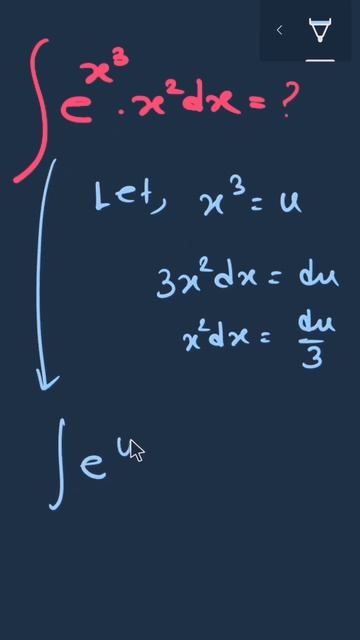 ∫ e^{x^3} . x^2 dx = ?
Let, x^3 = u
3x^2 dx = du
x^2 dx = du/3
∫ e^u